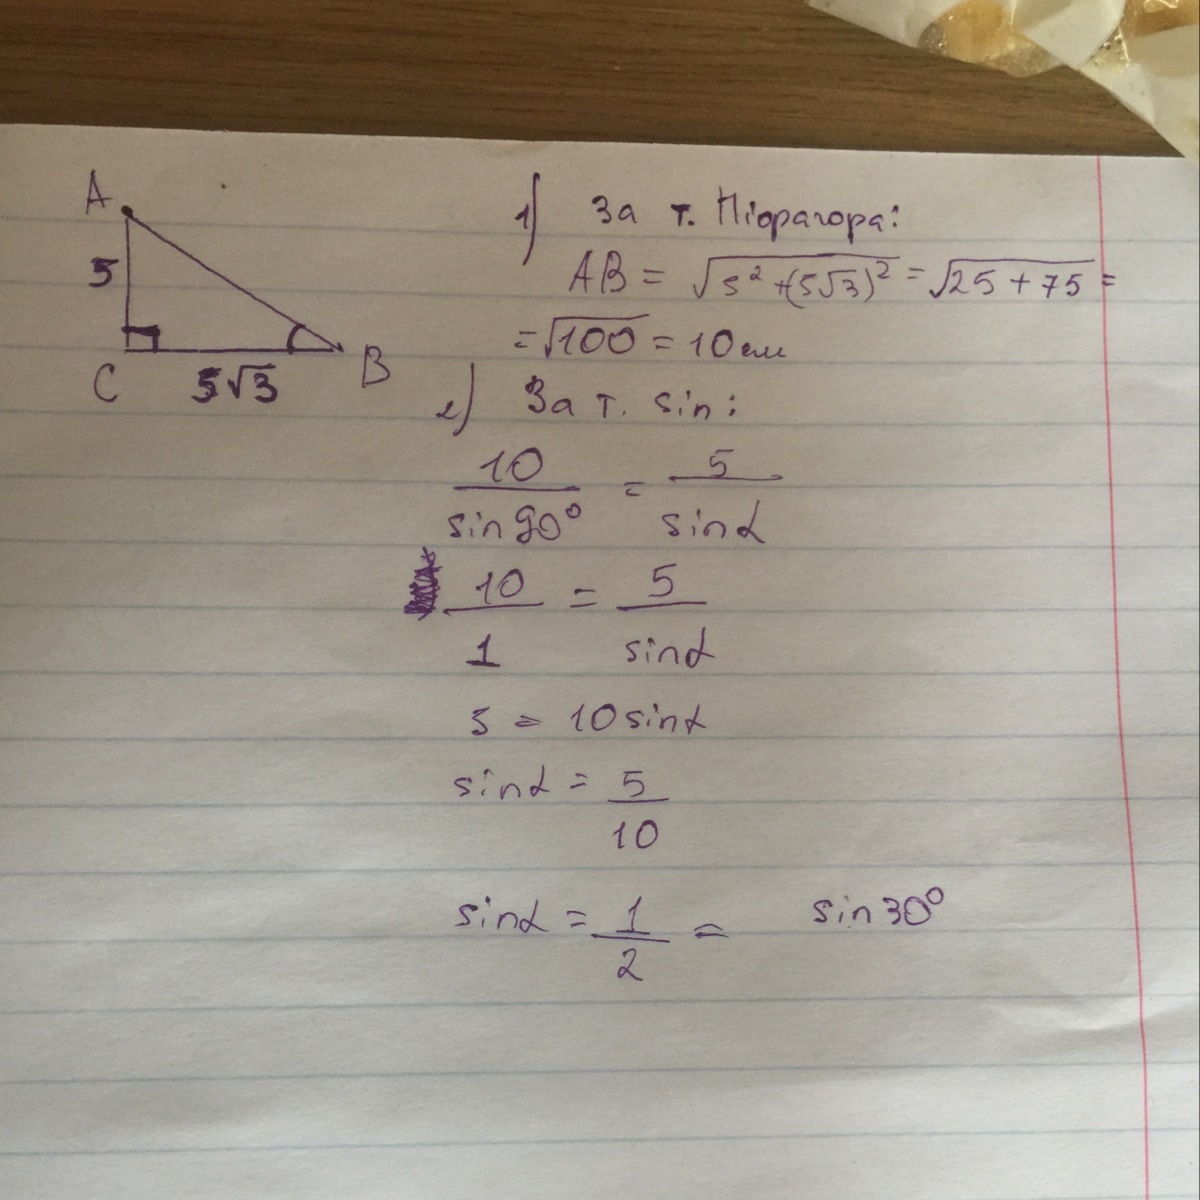 A
5
C
5√3
B
1) За т. Піфрагора:
AB = √5² + (5√3)² = √25 + 75 =
= √100 = 10 см
2) За т. sin:
10 / sin 90° = 5 / sin α
10 / 1 = 5 / sin α
5 = 10 sin α
sin α = 5 / 10
sin α = 1 / 2 = sin 30°